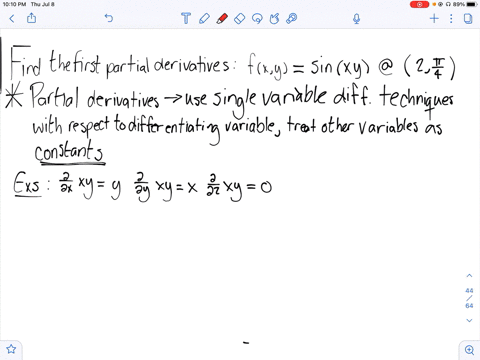 10:10 PM Thu Jul 8
89%
Find the first partial derivatives: f(x,y) = sin(xy) @ (2, π/4)
* Partial derivatives → use single variable diff. techniques
with respect to differentiating variable, treat other variables as
constants
Exs: ∂/∂x xy = y ∂/∂y xy = x ∂/∂z xy = 0
44
/
64